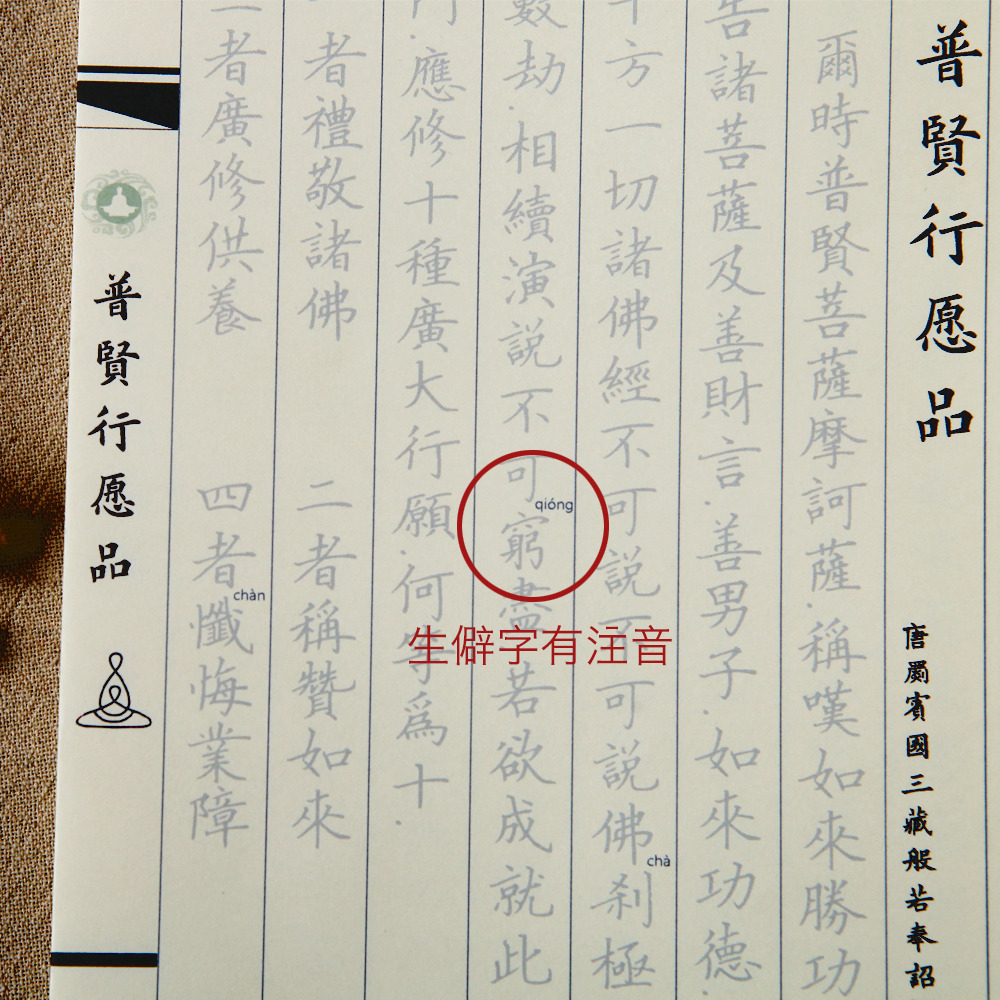 普賢行愿品
唐罽賓國三藏般若奉詔
爾時普賢菩薩摩訶薩.稱嘆如來勝功
告諸菩薩及善財言.善男子.如來功德.
十方一切諸佛經不可説不可説佛刹極
chà
數劫.相續演説不可窮盡若欲成就此
qióng
生僻字有注音
門.應修十種廣大行願.何等爲十.
者禮敬諸佛 二者稱贊如來
三者廣修供養 四者懺悔業障
chàn
普賢行愿品